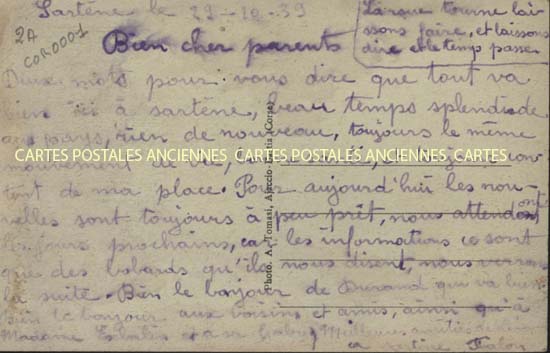 Sartène le 29-10-39
La roue tourne lai-
ssons faire, et laissons
dire et le temps passe
2A
COR0001
Bien cher parents
Deux mots pour vous dire que tout va
bien ici à sartène, beau temps splendide
pays, rien de nouveau, toujours le même
mouvement de
CARTES POSTALES ANCIENNES CARTES POSTALES ANCIENNES CARTES
tent de ma place. Pour aujourd'hui les nou-
elles sont toujours à peu prêt, nous attendons
jours prochains, car les informations ce sont
que des bobards qu'ils nous disent, nous verrons
la suite. Bien le bonjour de Durand qui va bien
bien le bonjour aux voisins et amis, ainsi qu'à
Madame
Photo. A. Tomasi, Ajaccio (Corse)